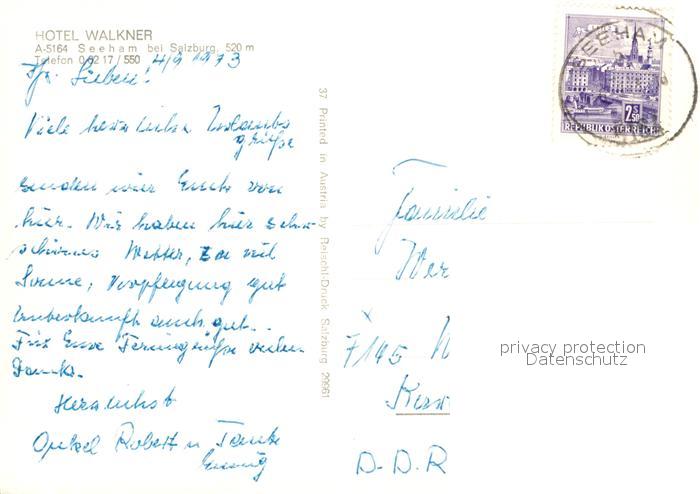 HOTEL WALKNER
A-5164 Seeham bei Salzburg, 520 m
Telefon 0 62 17 / 550
4/9 1973
Ihr Lieben!
Viele herzliche Urlaubs
grüße
senden wir Euch von
hier. Wir haben hier sehr
schönes Wetter, viel
Sonne, Verpflegung gut
Unterkunft auch gut..
Für Eure Feriengrüße vielen
Dank.
Herzlichst
Onkel Robert u Tante
37 Printed in Austria by Reischl-Druck Salzburg 29961
SEEHAM
2.50 S
REPUBLIK ÖSTERREICH
Familie
Wer
7145
D.D.R
privacy protection
Datenschutz